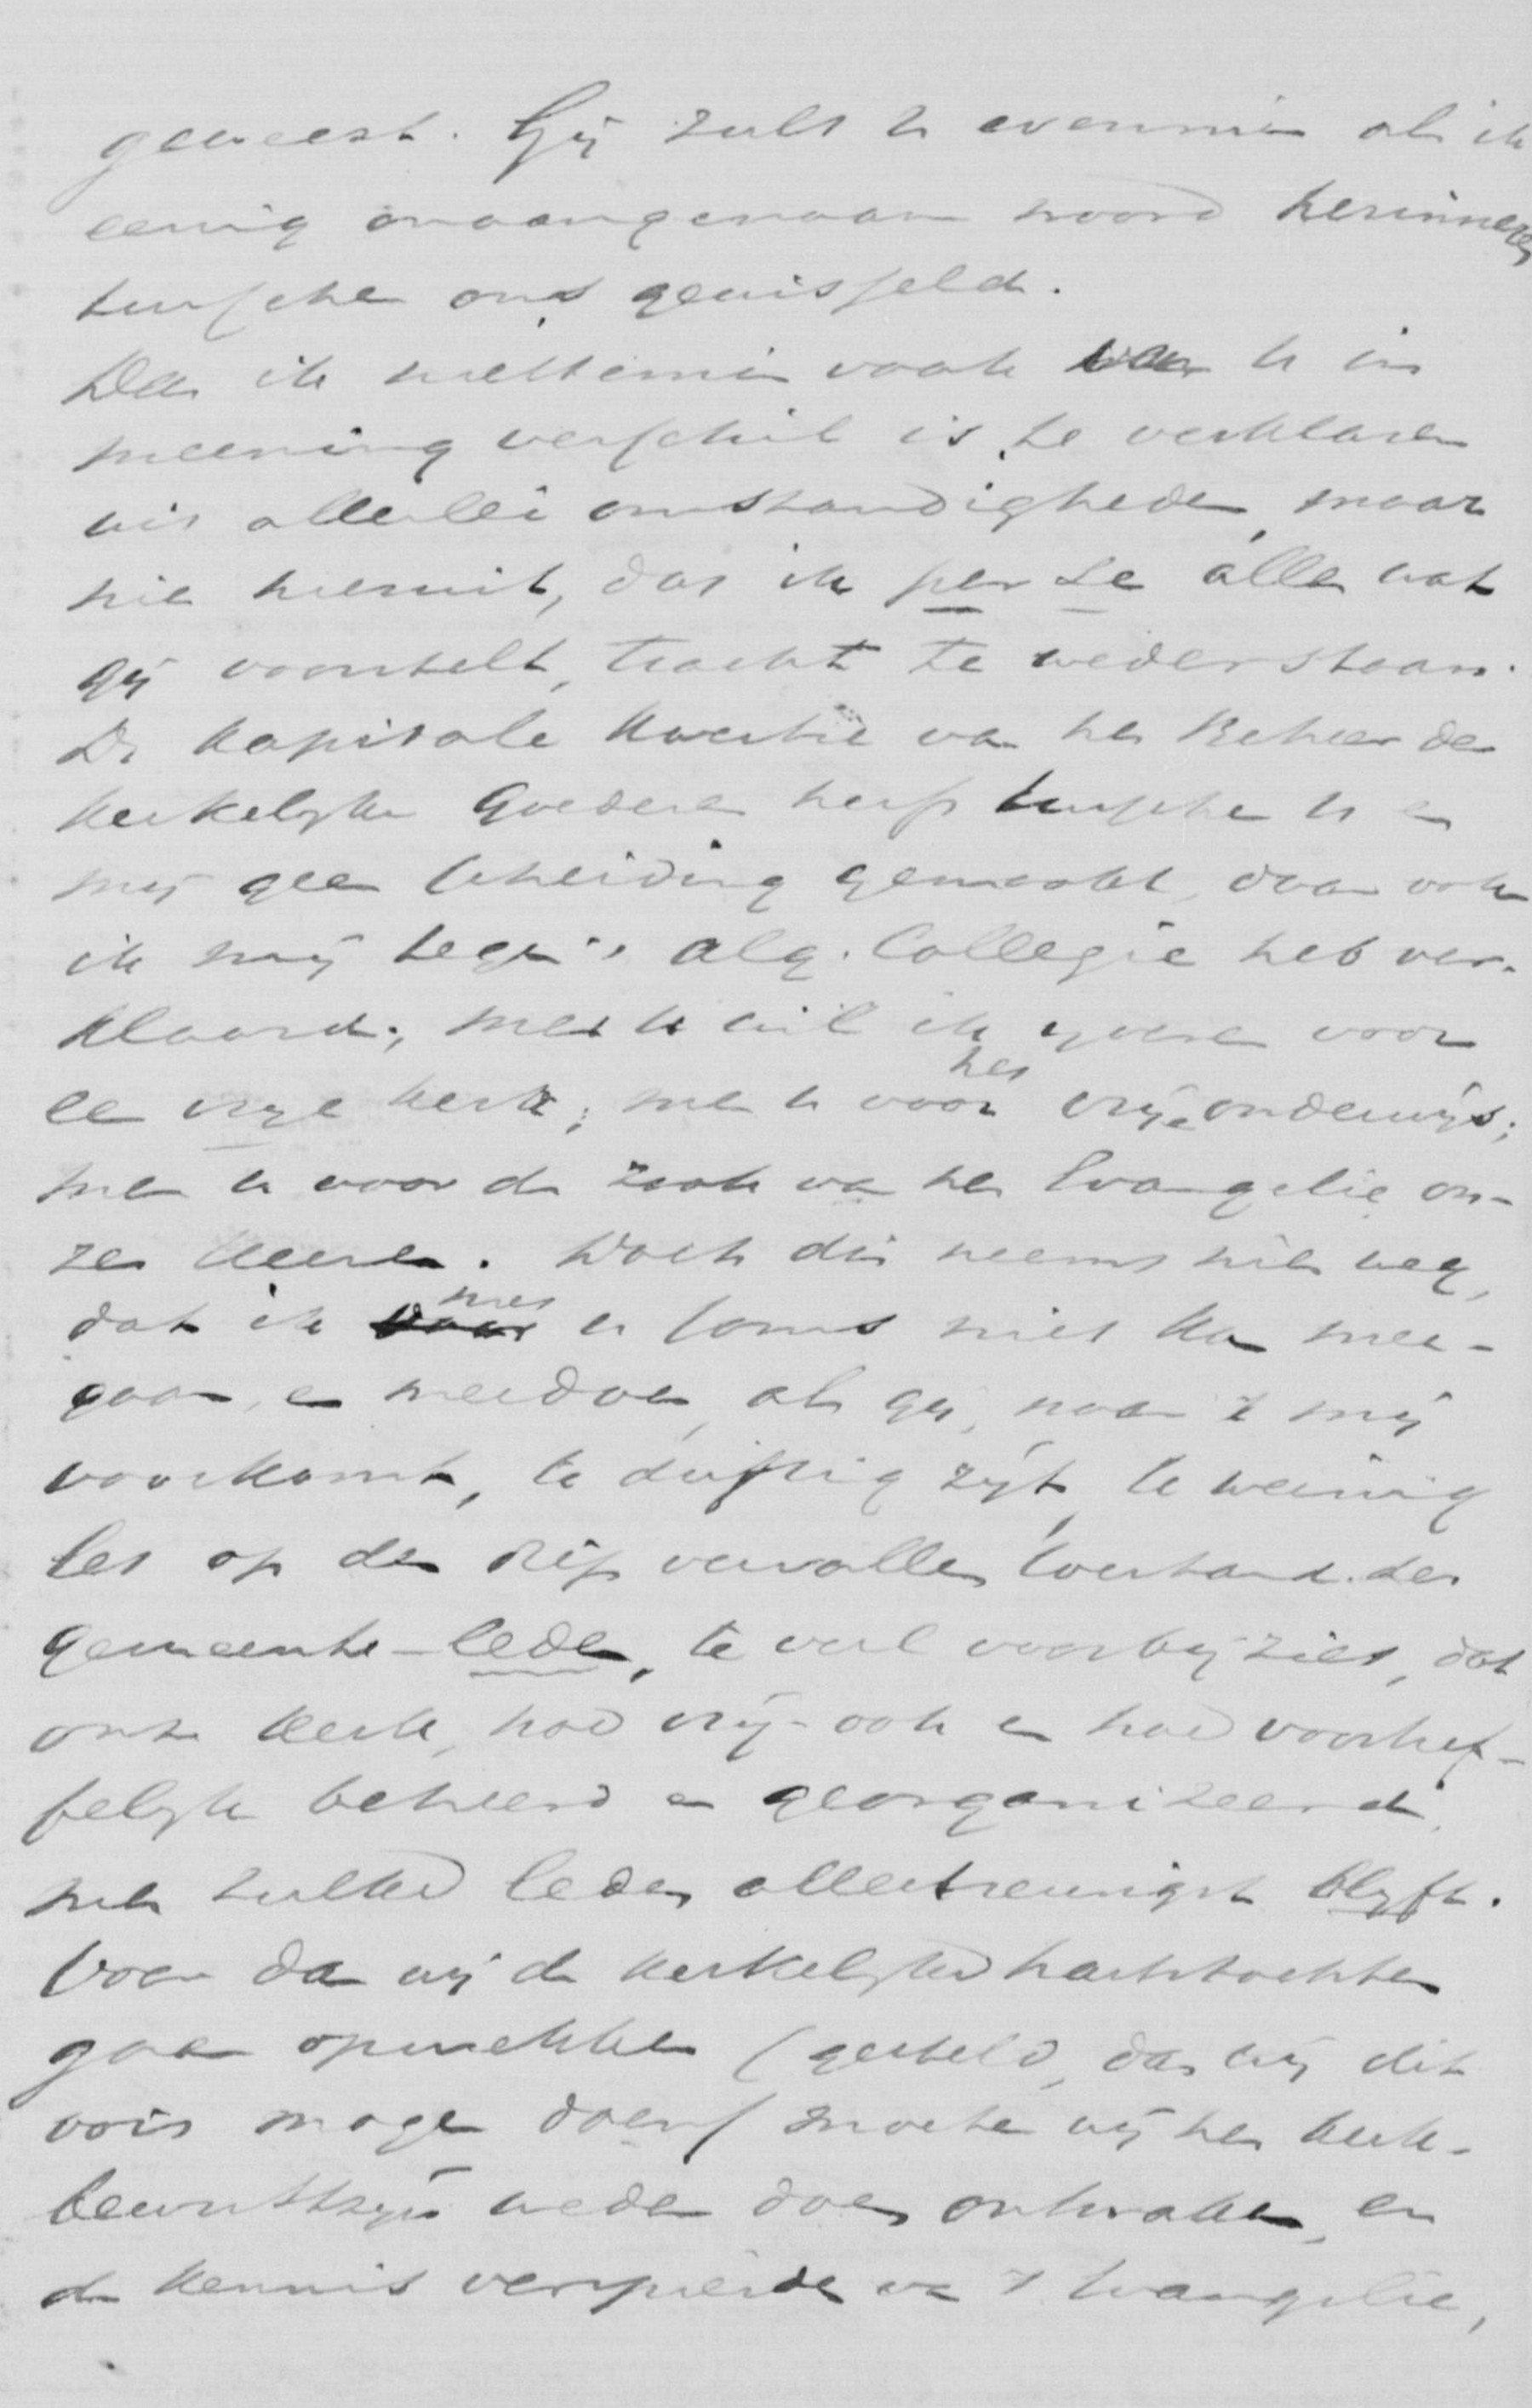 geweest. Gij zult U evenmin als ik
eenig onaangenaam woord herinneren
tusschen ons gewisseld.
Dat ik niettemin vaak van U in
meening verschil is te verklaren
uit allerlei omstandigheden, maar
niet hieruit, dat ik per se alles wat
gij voorstelt, tracht te wederstaan.
De kapitale kwestie van het Beheer der
kerkelijke goederen heeft tusschen U en
mij geen scheiding gemaakt, daar ook
ik mij tegen 't alg. Collegie heb ver-
klaard; met U wil ik ijveren voor
een vrije kerk; met U voor het vrije onderwijs;
met U voor de zaak van het Evangelie on-
zes Heeren. Doch dit neemt niet weg,
dat ik met U soms niet kan mee-
gaan, en meedoen, als gij, naar 't mij
voorkomt, te driftig zijt, te weinig
let op den diep vervallen toestand der
gemeente-leden, te veel voorbij ziet, dat
onze kerk, hoe vrij ook en hoe voortref-
felijk beheerd en georganizeerd,
met zulke leden allertreurigst blijft.
Voor dat wij de kerkelijke hartstochten
gaan opwekken (gesteld, dat wij dit
ooit mogen doen) moeten wij het kerk-
bewustzijn weder doen ontwaken, en
de kennis verspreiden van 't Evangelie,